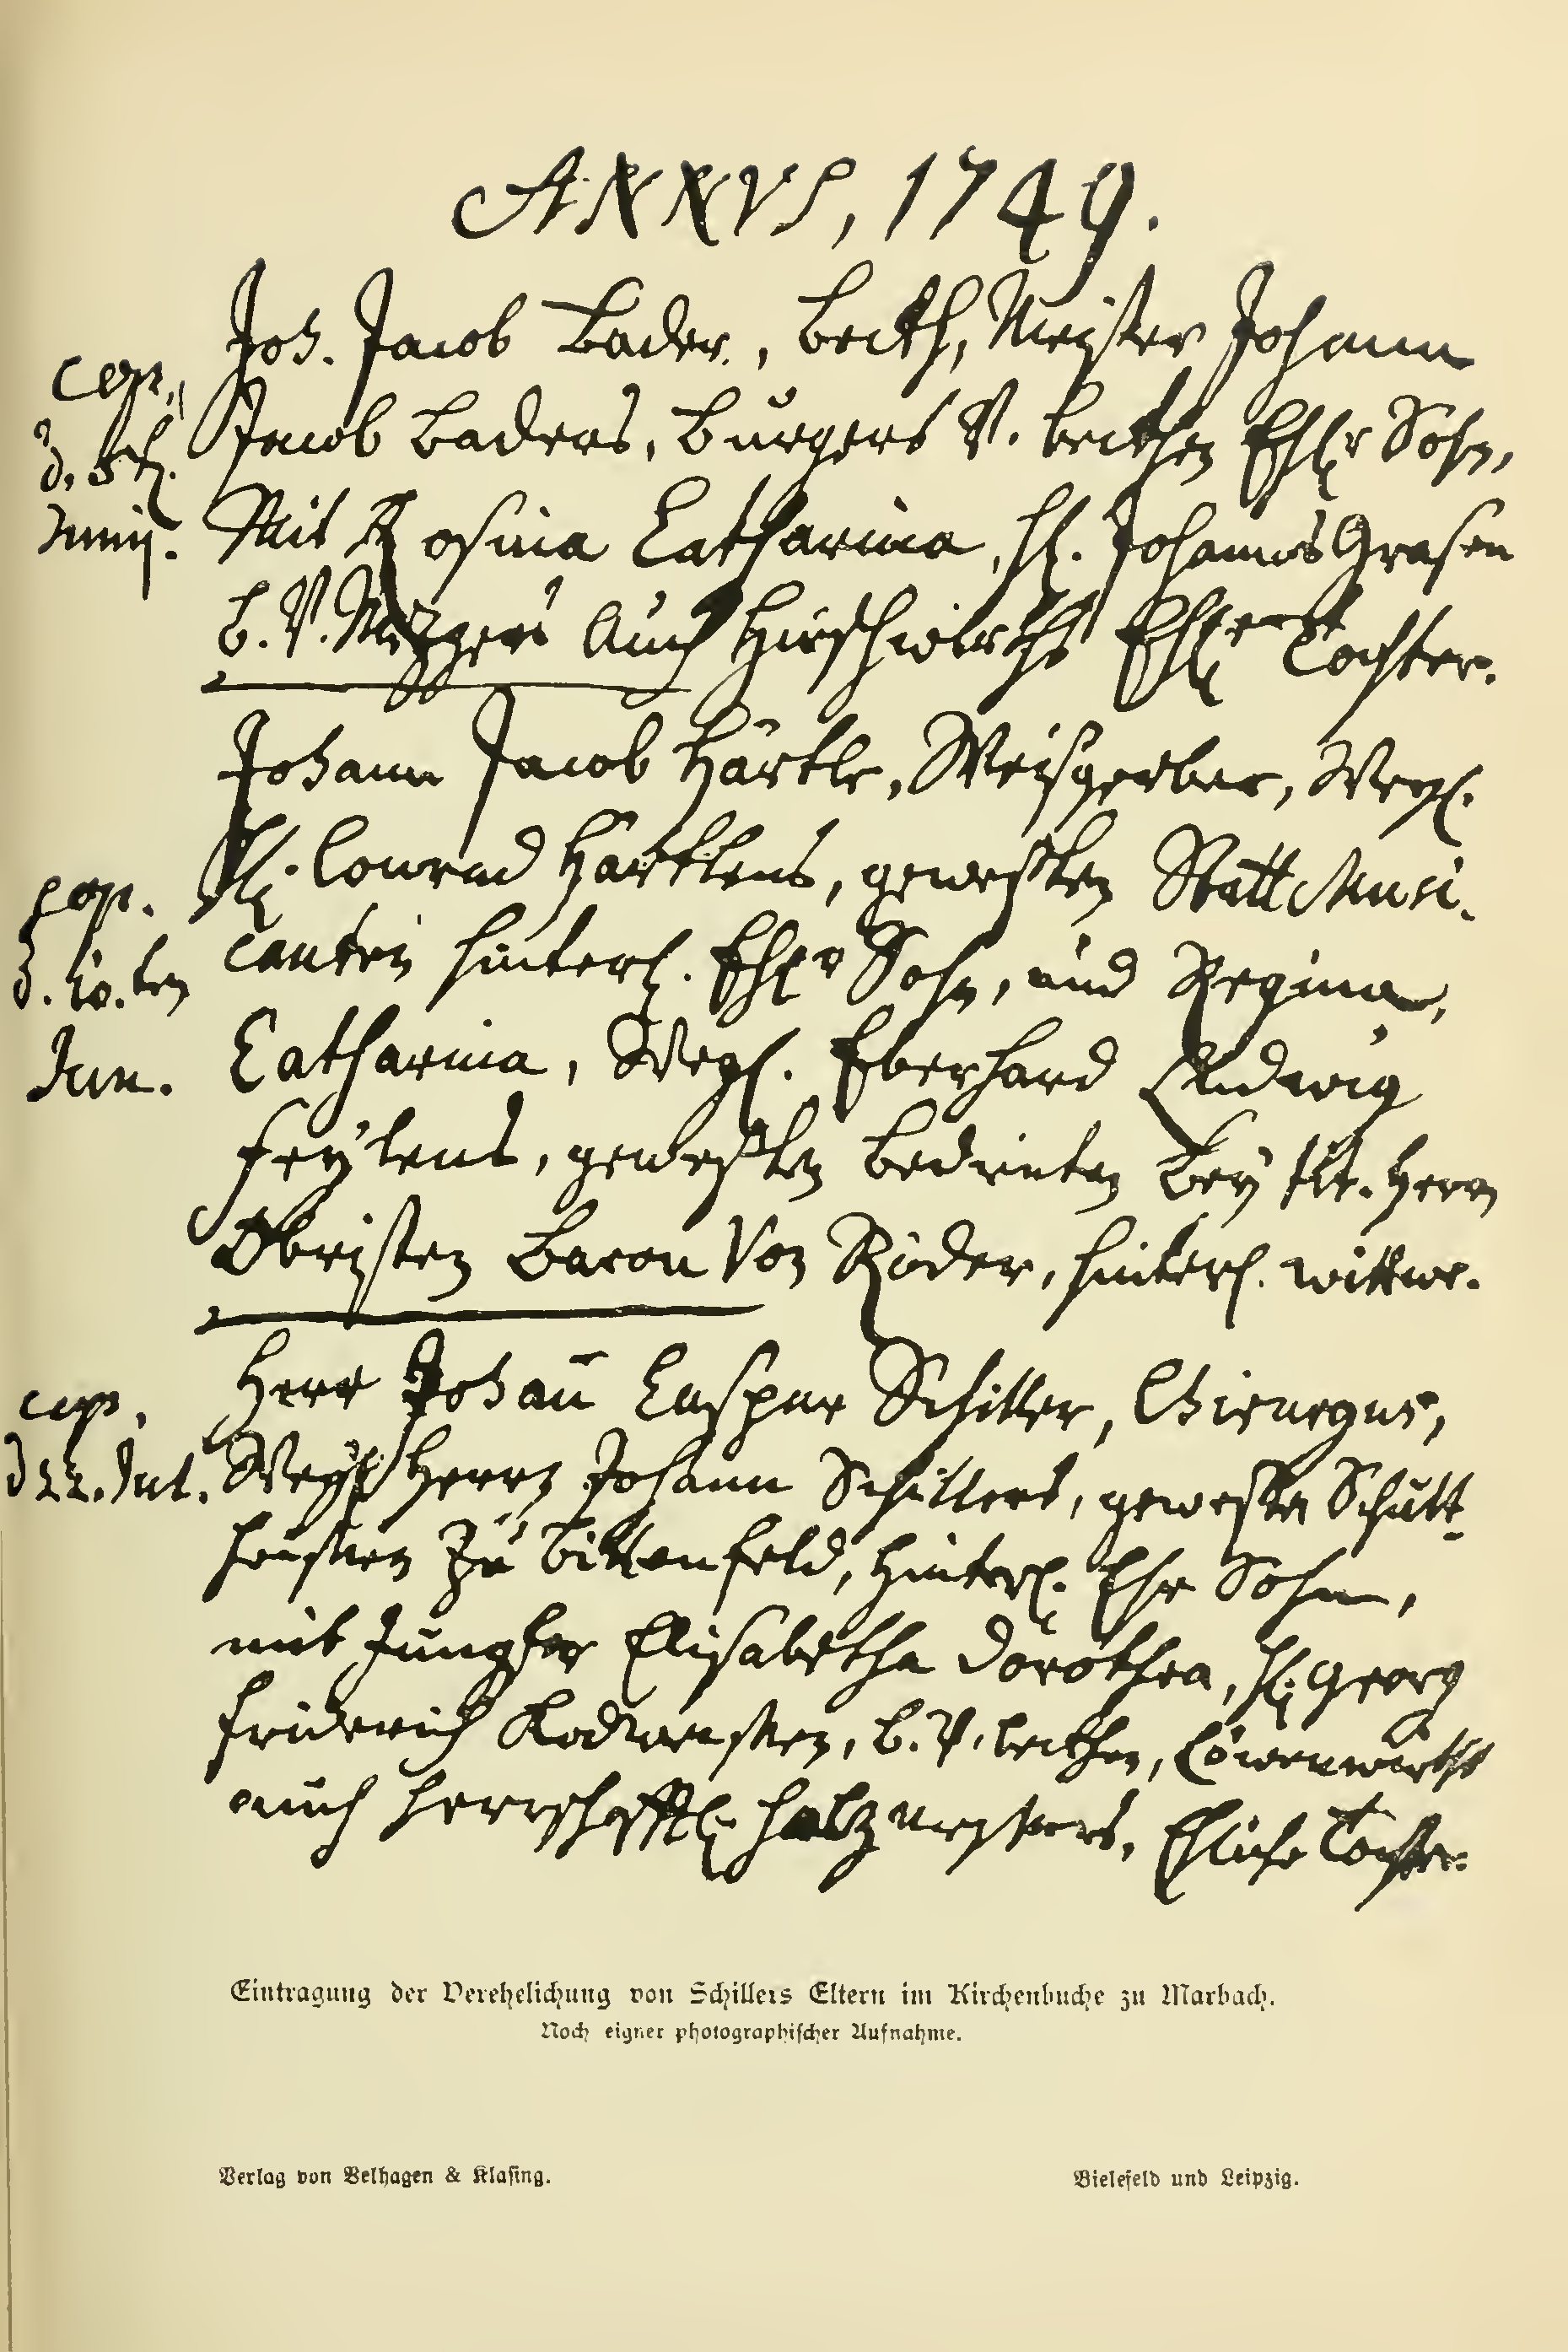 ANNVS, 1749.
Joh. Jacob Bader, Beckh, Meister Johann
cop.
Jacob Baders, Burgers V. beckhen Ehlr Sohn,
d. 3t.
Mit Rosina Catharina, H. Johannes Grafen
Junij.
b. V. Mezgers auch Hirschwirths Ehl. Tochter.
Johann Jacob Härtle, Weisgerber, Weyl.
H. Conrad Härtlens, gewesten Statt Musi-
cop.
canten hinterl. Ehlr Sohn, und Regina
d. 10.ten
Catharina, Weyl. Eberhard Ludwig
Jun.
Feylens, gewesten bedienten bey Herrn
Obristen Baron Von Röder, hinterl. wittwe.
Herr Johañ Caspar Schiller, Chirurgus,
cop.
Weyl. Herrn Johann Schillers, gewesten Schult-
d 22. Jul.
heissen zu Bittenfeld, hinterl. Ehe Sohn,
mit Jungfer Elisabetha Dorothea, H. Georg
Friderich Kodweissen, b. V. beckhen, Löwenwirths
auch herrschafftl. holzmessers, Ehliche Tochter.
Eintragung der Verehelichung von Schillers Eltern im Kirchenbuche zu Marbach.
Nach eigner photographischer Aufnahme.
Verlag von Velhagen & Klasing.
Bielefeld und Leipzig.